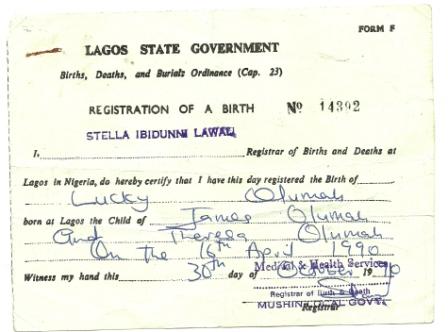 FORM F
LAGOS STATE GOVERNMENT
Births, Deaths, and Burials Ordinance (Cap. 23)
REGISTRATION OF A BIRTH Nº 14392
STELLA IBIDUNNI LAWAL
I, Registrar of Births and Deaths at
Lagos in Nigeria, do hereby certify that I have this day registered the Birth of
Lucky Olumah
born at Lagos the Child of James Olumah
And Theresa Olumah
On the 16th April 1990
Medical & Health Services
Witness my hand this 30th day of October 1990
Registrar of Birth & Death
Registrar
MUSHIN LOCAL GOVT.